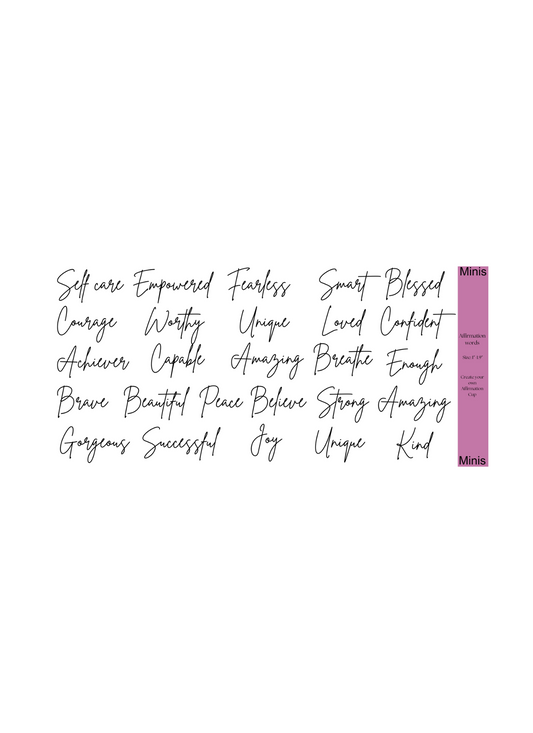 Self care Empowered Fearless Smart Blessed
Courage Worthy Unique Loved Confident
Achiever Capable Amazing Breathe Enough
Brave Beautiful Peace Believe Strong Amazing
Gorgeous Successful Joy Unique Kind
Minis
Affirmation
words
Create your
own
Affirmation
Cup
Minis